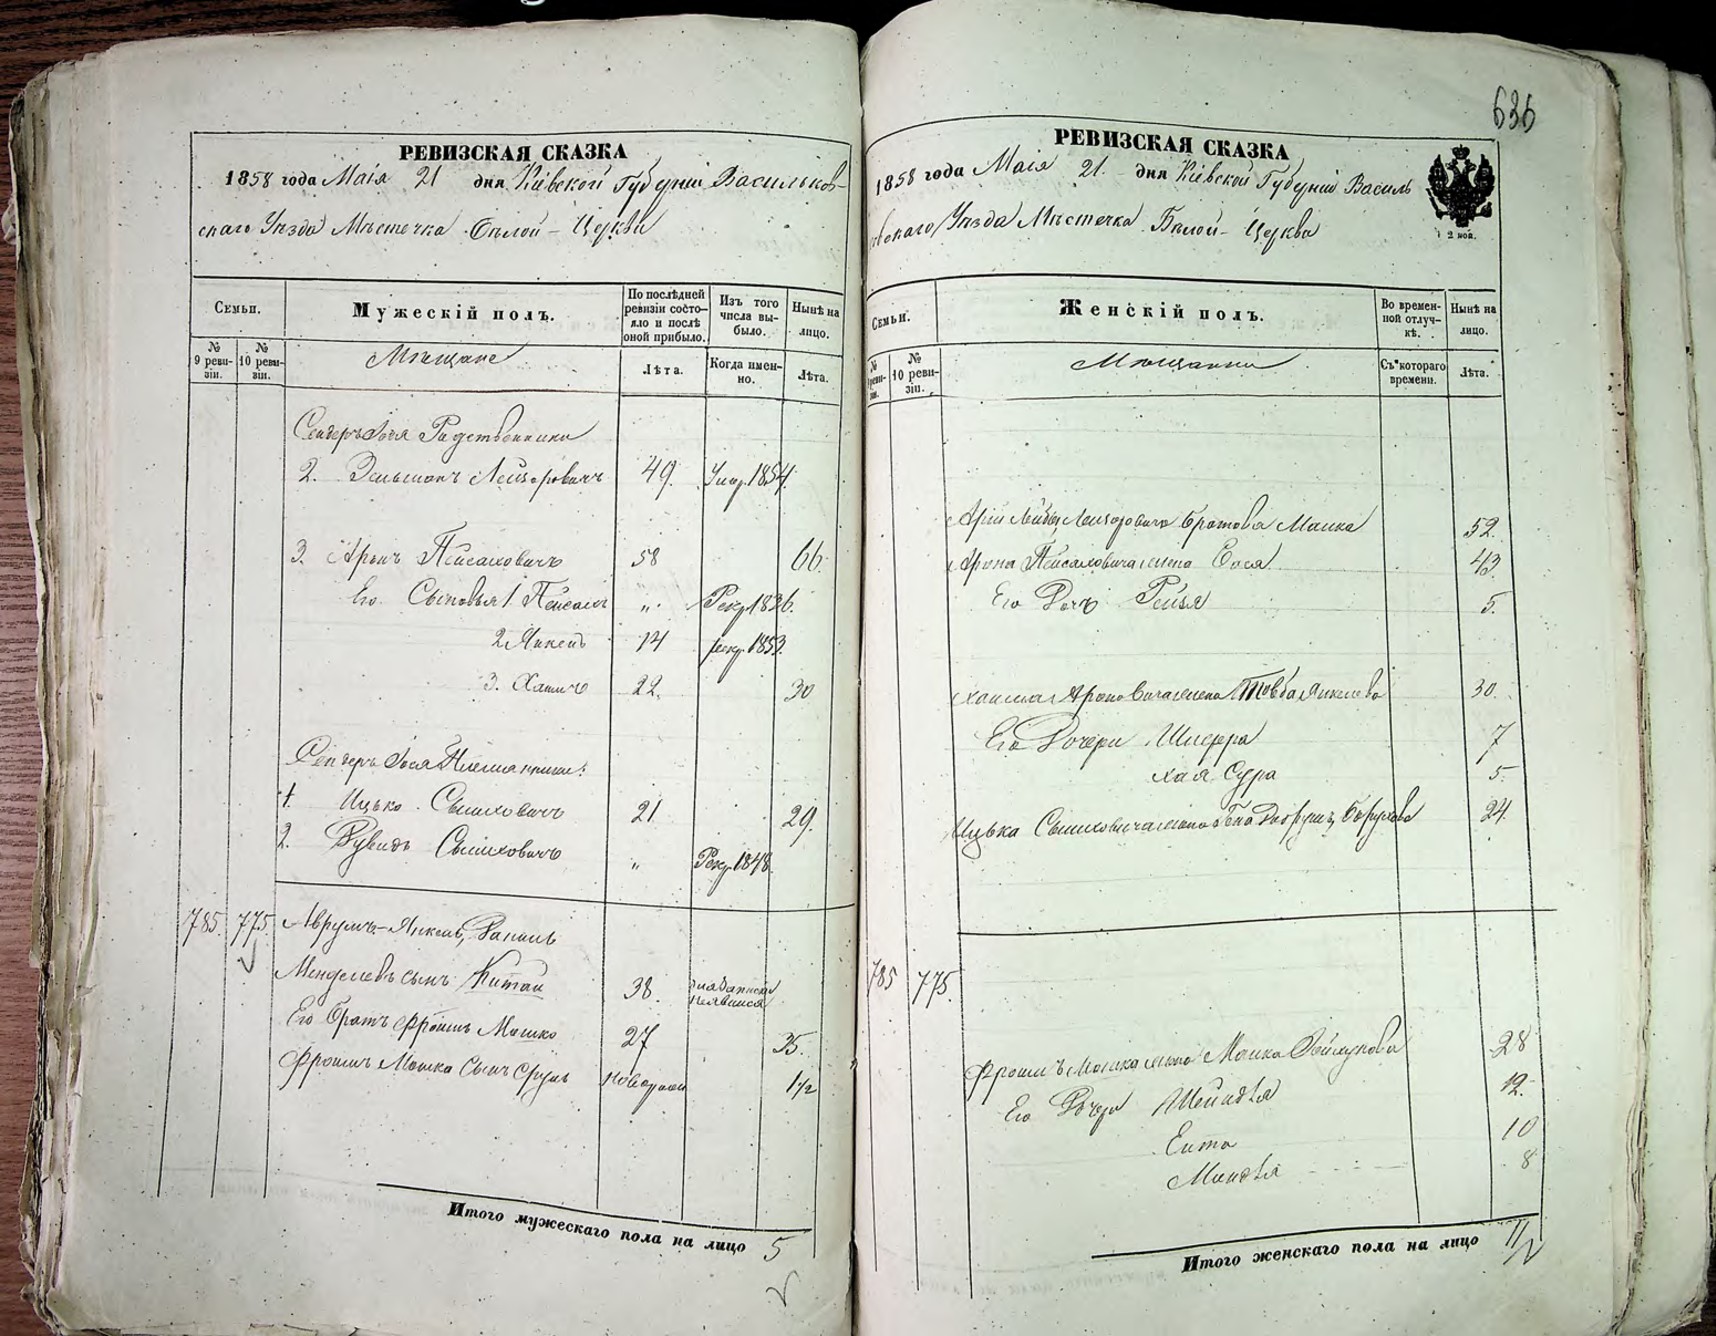 РЕВИЗСКАЯ СКАЗКА
1858 года Маія 21 дня Кіевской Губерніи Васильков-
скаго Уѣзда Мѣстечка Бѣлой-Церкви
Семьи.
Мужескій полъ.
По послѣдней ревизіи состояло и послѣ оной прибыло.
Изъ того числа выбыло.
Нынѣ на лицо.
№ 9 ревизіи.
№ 10 ревизіи.
Мѣщане
Лѣта.
Когда именно.
Лѣта.
Родственники
2. Зельманъ Лейзоровичъ 49. Умер. 1854.
3. Аронъ Пейсаховичъ 58 66.
Его Сыновья 1 Пейсахъ „ Рекр. 1836.
2 Янкель 14 рекр. 1853.
3. Хаимъ 22. 30
Племянники:
1. Ицько Сымховичъ 21 29.
2. Рувинъ Сымховичъ „ Рекр. 1848.
785. 775. Аврумъ-Янкель,
Менделевъ сынъ Китай 38. явился
Его братъ Фроимъ Мошко 27 35.
Фроимъ Мошка Сынъ Сруль новорожд 1½
Итого мужескаго пола на лицо 5
636
РЕВИЗСКАЯ СКАЗКА
1858 года Маія 21. дня Кіевской Губерніи Василь
ковскаго Уѣзда Мѣстечка Бѣлой-Церкви
Семьи.
Женскій полъ.
Во временной отлучкѣ.
Нынѣ на лицо.
№ 9 ревизіи.
№ 10 ревизіи.
Мѣщанки
Съ котораго времени.
Лѣта.
Лейзоровича братова Малка 52.
Арона Пейсаховича жена Сося 43.
Его Дочь Рейзя 5.
Хаима Ароновича жена Товба Янкелева 30.
Его Дочери Шифра 7
Хая Сура 5.
Ицька Сымховича жена Борухова 24.
785 775.
Фроимъ Мошка жена Малка 28
Его Дочери Шейндля 12.
Ента 10
Миндля 8
Итого женскаго пола на лицо 11